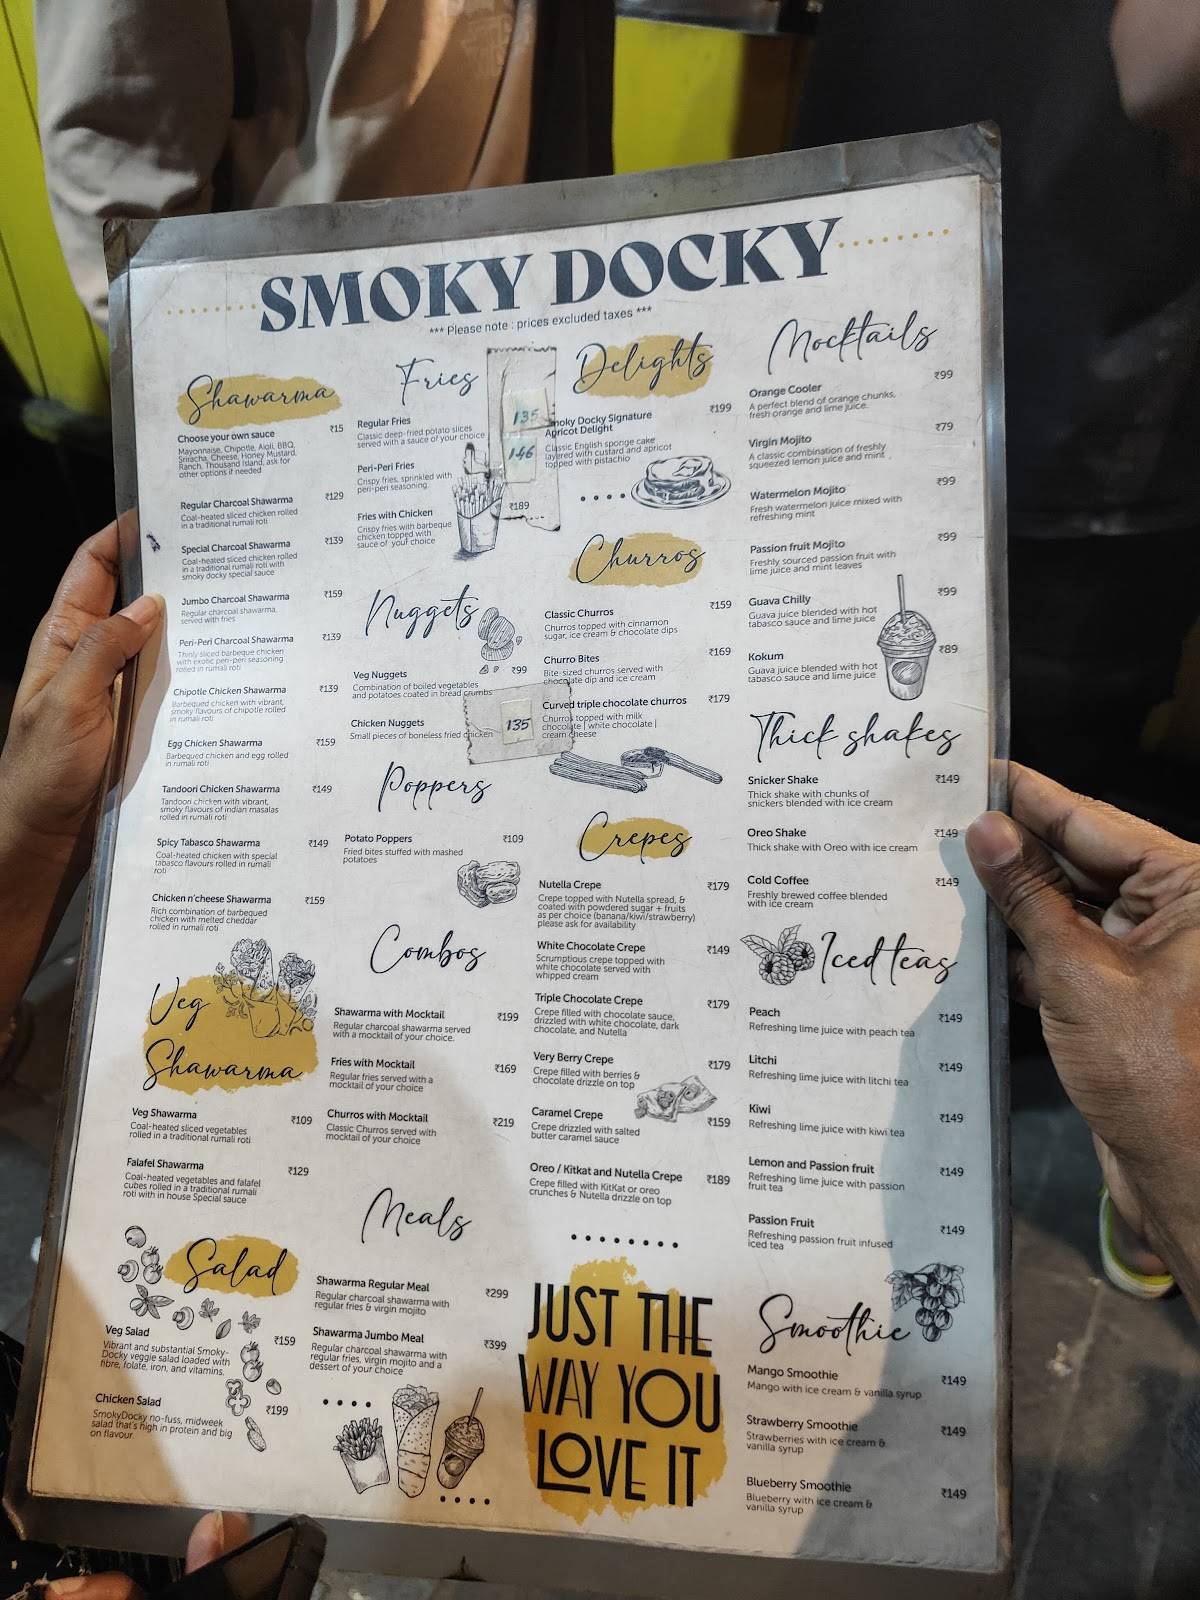 SMOKY DOCKY
*** Please note : prices excluded taxes ***
Shawarma
Choose your own sauce ₹15
Mayonnaise, Chipotle, Aioli, BBQ,
Sriracha, Cheese, Honey Mustard,
Ranch, Thousand Island, ask for
other options if needed
Regular Charcoal Shawarma ₹129
Coal-heated sliced chicken rolled
in a traditional rumali roti
Special Charcoal Shawarma ₹139
Coal-heated sliced chicken rolled
in a traditional rumali roti with
smoky docky special sauce
Jumbo Charcoal Shawarma ₹159
Regular charcoal shawarma,
served with fries
Peri-Peri Charcoal Shawarma ₹139
Thinly sliced barbeque chicken
with exotic peri-peri seasoning
rolled in rumali roti
Chipotle Chicken Shawarma ₹139
Barbequed chicken with vibrant,
smoky flavours of chipotle rolled
in rumali roti
Egg Chicken Shawarma ₹159
Barbequed chicken and egg rolled
in rumali roti
Tandoori Chicken Shawarma ₹149
Tandoori chicken with vibrant,
smoky flavours of indian masalas
rolled in rumali roti
Spicy Tabasco Shawarma ₹149
Coal-heated chicken with special
tabasco flavours rolled in rumali
roti
Chicken n'cheese Shawarma ₹159
Rich combination of barbequed
chicken with melted cheddar
rolled in rumali roti
Veg
Shawarma
Veg Shawarma ₹109
Coal-heated sliced vegetables
rolled in a traditional rumali roti
Falafel Shawarma ₹129
Coal-heated vegetables and falafel
cubes rolled in a traditional rumali
roti with in house Special sauce
Salad
Veg Salad ₹159
Vibrant and substantial Smoky-
Docky veggie salad loaded with
fibre, folate, iron, and vitamins.
Chicken Salad ₹199
SmokyDocky no-fuss, midweek
salad that's high in protein and big
on flavour.
Fries
Regular Fries 135
Classic deep-fried potato slices
served with a sauce of your choice
Peri-Peri Fries 146
Crispy fries, sprinkled with
peri-peri seasoning.
Fries with Chicken ₹189
Crispy fries with barbeque
chicken topped with
sauce of your choice
Nuggets
Veg Nuggets ₹99
Combination of boiled vegetables
and potatoes coated in bread crumbs
Chicken Nuggets 135
Small pieces of boneless fried chicken
Poppers
Potato Poppers ₹109
Fried bites stuffed with mashed
potatoes
Combos
Shawarma with Mocktail ₹199
Regular charcoal shawarma served
with a mocktail of your choice.
Fries with Mocktail ₹169
Regular fries served with a
mocktail of your choice
Churros with Mocktail ₹219
Classic Churros served with
mocktail of your choice
Meals
Shawarma Regular Meal ₹299
Regular charcoal shawarma with
regular fries & virgin mojito
Shawarma Jumbo Meal ₹399
Regular charcoal shawarma with
regular fries, virgin mojito and a
dessert of your choice
Delights
Smoky Docky Signature ₹199
Apricot Delight
Classic English sponge cake
layered with custard and apricot
topped with pistachio
Churros
Classic Churros ₹159
Churros topped with cinnamon
sugar, ice cream & chocolate dips
Churro Bites ₹169
Bite-sized churros served with
chocolate dip and ice cream
Curved triple chocolate churros ₹179
Churros topped with milk
chocolate | white chocolate |
cream cheese
Crepes
Nutella Crepe ₹179
Crepe topped with Nutella spread, &
coated with powdered sugar + fruits
as per choice (banana/kiwi/strawberry)
please ask for availability
White Chocolate Crepe ₹149
Scrumptious crepe topped with
white chocolate served with
whipped cream
Triple Chocolate Crepe ₹179
Crepe filled with chocolate sauce,
drizzled with white chocolate, dark
chocolate, and Nutella
Very Berry Crepe ₹179
Crepe filled with berries &
chocolate drizzle on top
Caramel Crepe ₹159
Crepe drizzled with salted
butter caramel sauce
Oreo / Kitkat and Nutella Crepe ₹189
Crepe filled with KitKat or oreo
crunches & Nutella drizzle on top
JUST THE
WAY YOU
LOVE IT
Mocktails
Orange Cooler ₹99
A perfect blend of orange chunks,
fresh orange and lime juice.
Virgin Mojito ₹79
A classic combination of freshly
squeezed lemon juice and mint
Watermelon Mojito ₹99
Fresh watermelon juice mixed with
refreshing mint
Passion fruit Mojito ₹99
Freshly sourced passion fruit with
lime juice and mint leaves
Guava Chilly ₹99
Guava juice blended with hot
tabasco sauce and lime juice
Kokum ₹89
Guava juice blended with hot
tabasco sauce and lime juice
Thick shakes
Snicker Shake ₹149
Thick shake with chunks of
snickers blended with ice cream
Oreo Shake ₹149
Thick shake with Oreo with ice cream
Cold Coffee ₹149
Freshly brewed coffee blended
with ice cream
Iced teas
Peach ₹149
Refreshing lime juice with peach tea
Litchi ₹149
Refreshing lime juice with litchi tea
Kiwi ₹149
Refreshing lime juice with kiwi tea
Lemon and Passion fruit ₹149
Refreshing lime juice with passion
fruit tea
Passion Fruit ₹149
Refreshing passion fruit infused
iced tea
Smoothie
Mango Smoothie ₹149
Mango with ice cream & vanilla syrup
Strawberry Smoothie ₹149
Strawberries with ice cream &
vanilla syrup
Blueberry Smoothie ₹149
Blueberry with ice cream &
vanilla syrup